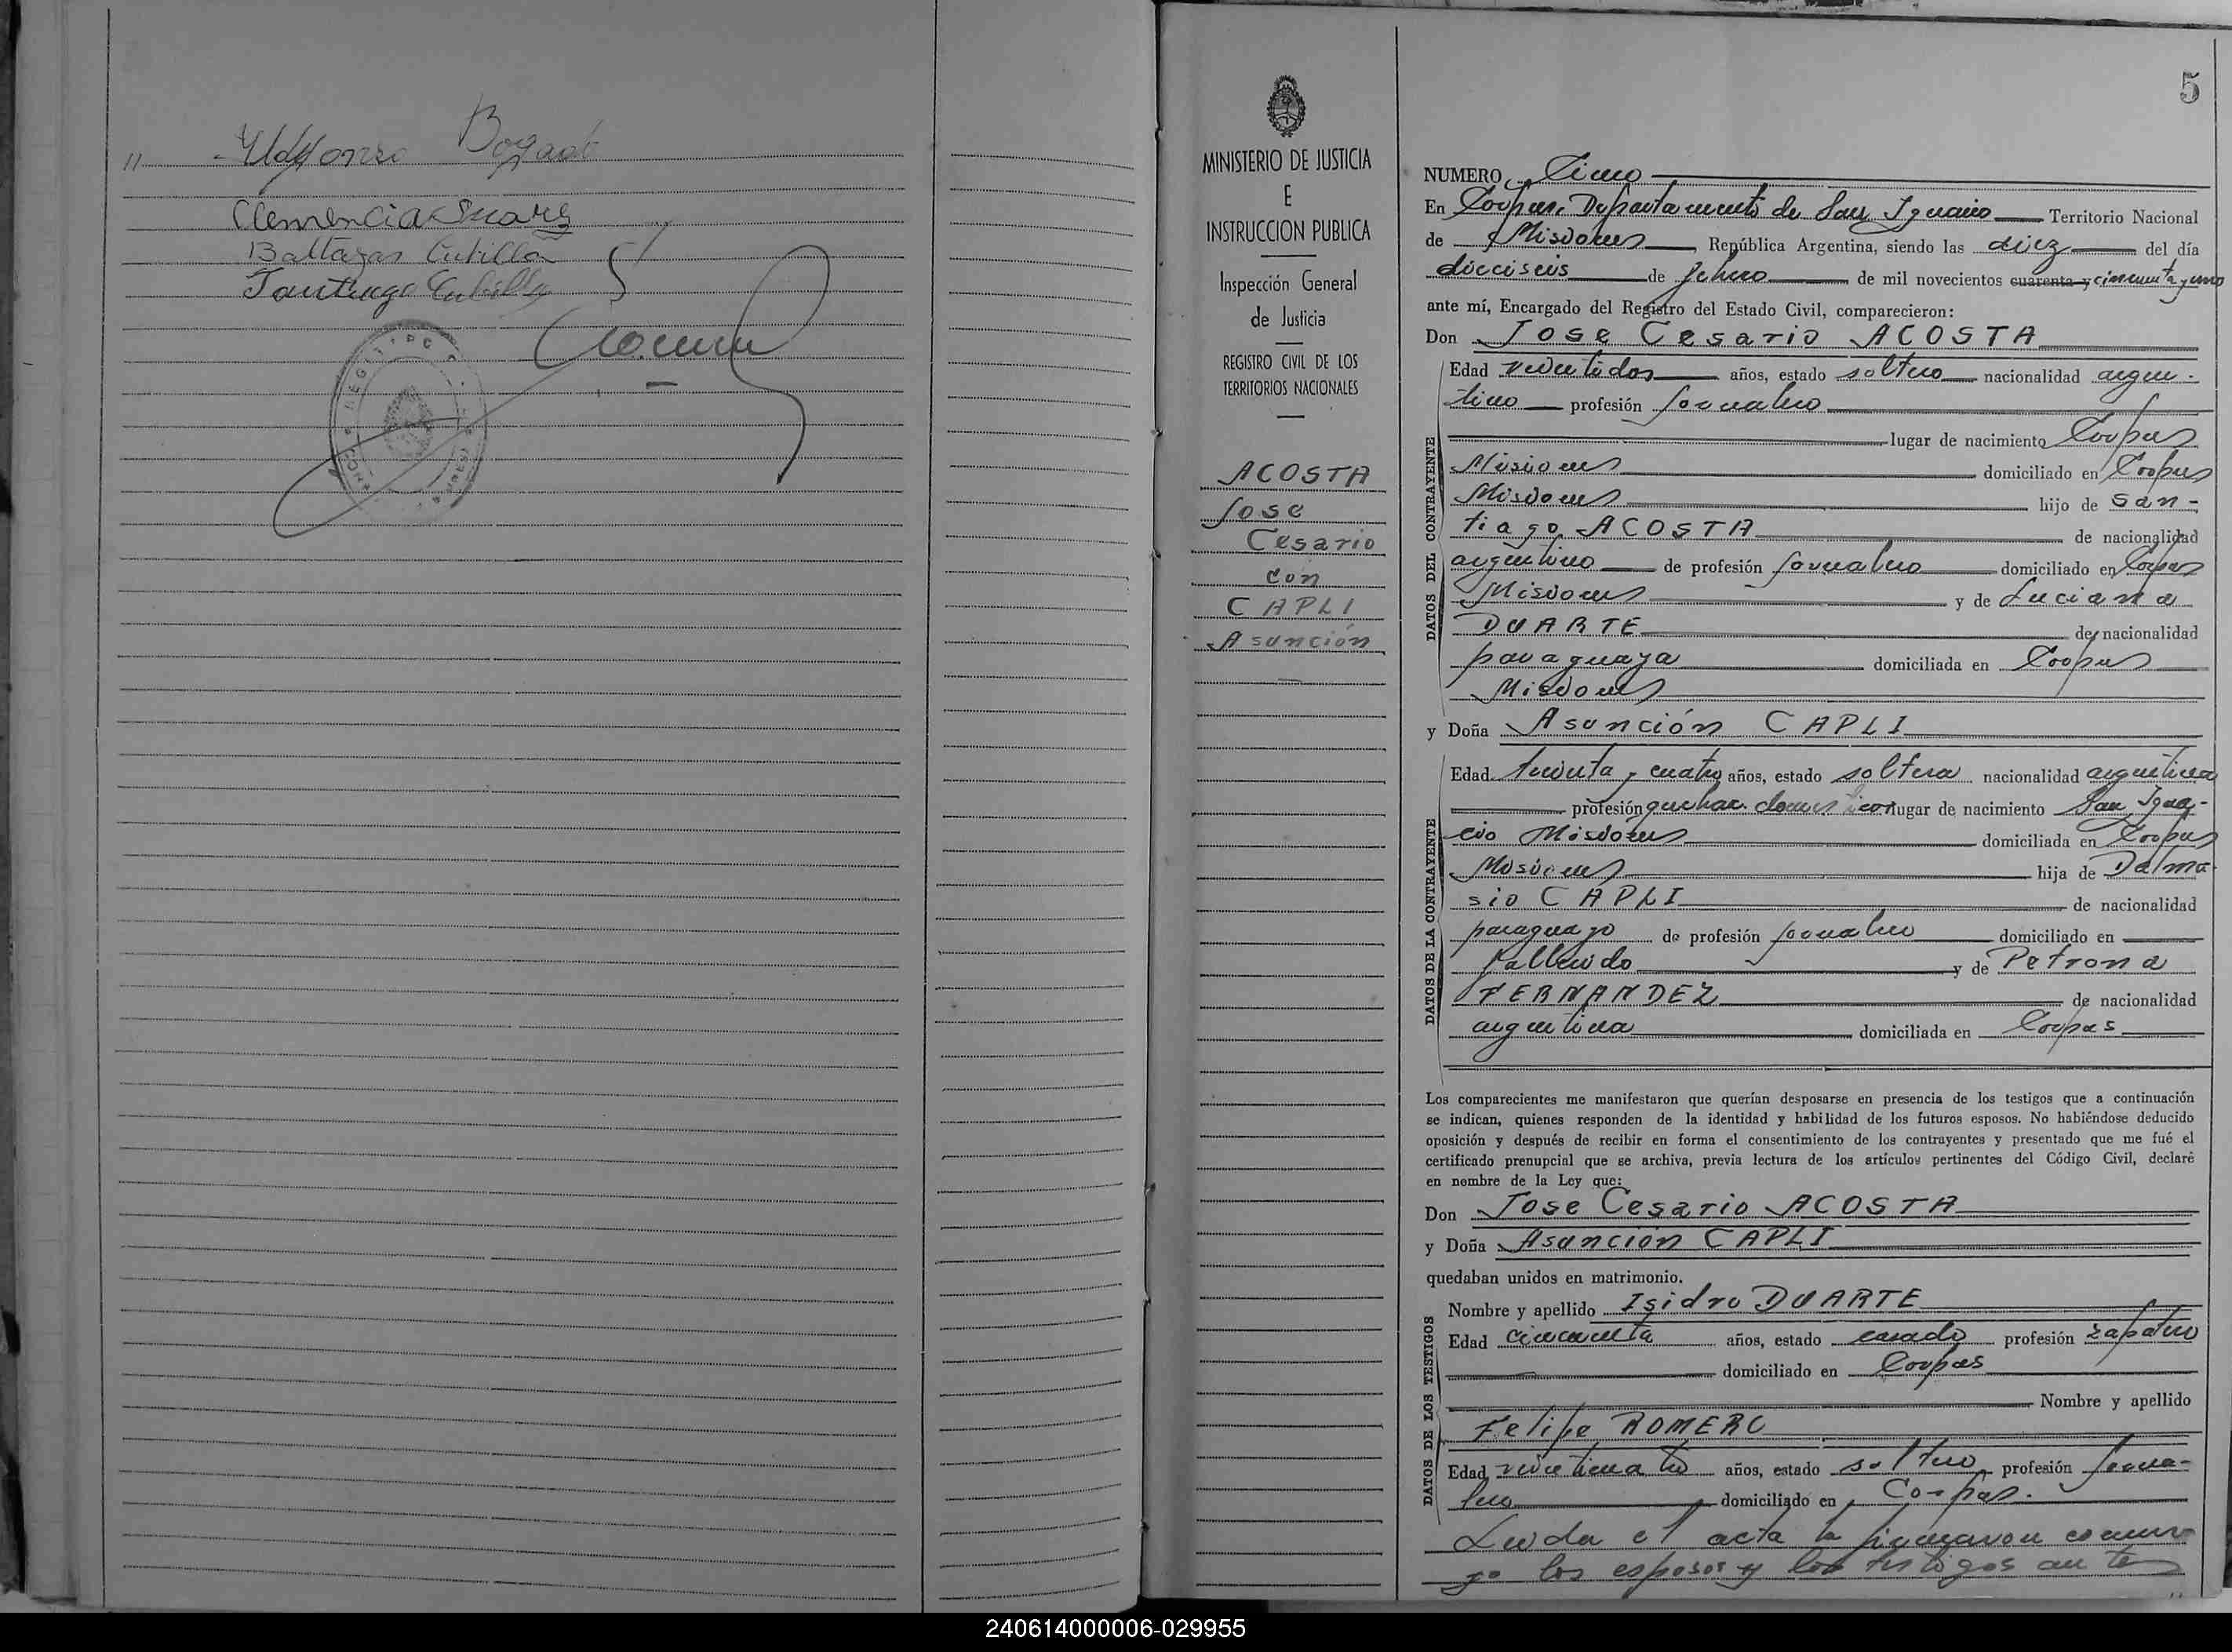 11 Ildefonso Bogado
Clemencia Suarez
Baltazar Cubilla
Santiago Cubilla
5
MINISTERIO DE JUSTICIA
E
INSTRUCCION PUBLICA
Inspección General
de Justicia
REGISTRO CIVIL DE LOS
TERRITORIOS NACIONALES
ACOSTA
Jose
Cesario
con
CAPLI
Asunción
NUMERO Cinco
En Corpus, Departamento de San Ignacio Territorio Nacional
de Misiones República Argentina, siendo las diez del día
dieciseis de febrero de mil novecientos cuarenta y cincuenta y uno
ante mí, Encargado del Registro del Estado Civil, comparecieron:
Don Jose Cesario ACOSTA
DATOS DEL CONTRAYENTE
Edad veintidos años, estado soltero nacionalidad argen-
tino profesión jornalero
lugar de nacimiento Corpus
Misiones domiciliado en Corpus
Misiones hijo de San-
tiago ACOSTA de nacionalidad
argentino de profesión jornalero domiciliado en Corpus
Misiones y de Luciana
DUARTE de nacionalidad
paraguaya domiciliada en Corpus
Misiones
y Doña Asunción CAPLI
DATOS DE LA CONTRAYENTE
Edad treinta y cuatro años, estado soltera nacionalidad argentina
profesión quehac. domesticos lugar de nacimiento San Igna-
cio Misiones domiciliada en Corpus
Misiones hija de Dalma-
sio CAPLI de nacionalidad
paraguayo de profesión jornalero domiciliado en
fallecido y de Petrona
FERNANDEZ de nacionalidad
argentina domiciliada en Corpus
Los comparecientes me manifestaron que querían desposarse en presencia de los testigos que a continuación
se indican, quienes responden de la identidad y habilidad de los futuros esposos. No habiéndose deducido
oposición y después de recibir en forma el consentimiento de los contrayentes y presentado que me fué el
certificado prenupcial que se archiva, previa lectura de los artículos pertinentes del Código Civil, declaré
en nombre de la Ley que:
Don Jose Cesario ACOSTA
y Doña Asunción CAPLI
quedaban unidos en matrimonio.
DATOS DE LOS TESTIGOS
Nombre y apellido Isidro DUARTE
Edad cincuenta años, estado casado profesión zapatero
domiciliado en Corpus
Nombre y apellido
Felipe ROMERO
Edad veinticuatro años, estado soltero profesión jorna-
lero domiciliado en Corpus.
Leida el acta la firmaron conmi-
go los esposos y los testigos ante
240614000006-029955